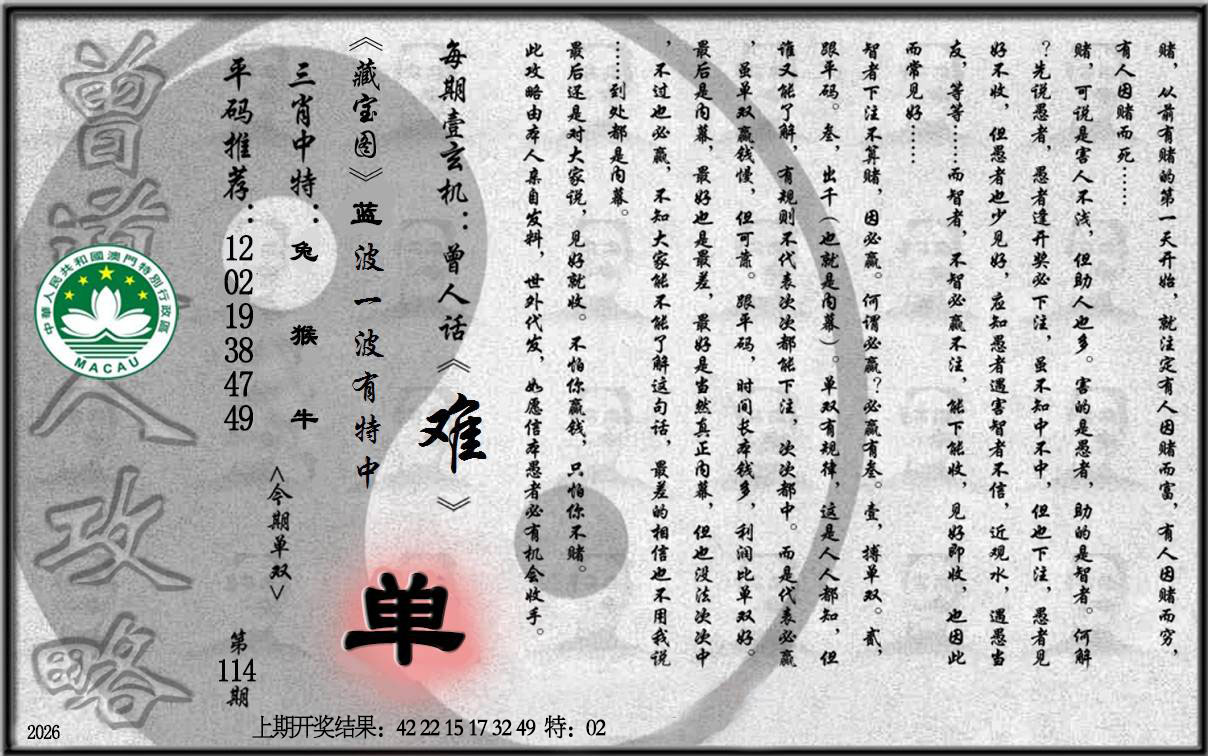 赌，从前有赌的第一天开始，就注定有人因赌而富，有人因赌而穷，
有人因赌而死……
赌，可说是害人不浅，但助人也多。害的是愚者，助的是智者。何解
？先说愚者，愚者逢开奖必下注，虽不知中不中，但也下注，愚者见
好不收，但愚者也少见好，应知愚者遇害智者不信，近观水，遇愚当
友，等等……而智者，不智必赢不注，能下能收，见好即收，也因此
而常见好……
智者下注不算赌，因必赢。何谓必赢？必赢有叁。壹，搏单双。贰，
跟平码。叁，出千（也就是内幕）。单双有规律，这是人人都知，但
谁又能了解，有规则不代表次次都能下注，次次都中。而是代表必赢
，虽单双赢钱慢，但可靠。跟平码，时间长本钱多，利润比单双好。
最后是内幕，最好也是最差，最好是当然真正内幕，但也没法次次中
，不过也必赢，不知大家能不能了解这句话，最差的相信也不用我说
……到处都是内幕。
最后还是对大家说，见好就收。不怕你赢钱，只怕你不赌。
此攻略由本人亲自发料，世外代发，如愿信本愚者必有机会收手。
每期壹玄机：曾人话《难》
《藏宝图》蓝波一波有特中
三肖中特：兔 猴 牛
<今期单双>
单
平码推荐：12 02 19 38 47 49
第114期
曾道人攻略
中華人民共和國澳門特別行政區
MACAU
2026
上期开奖结果：42 22 15 17 32 49 特：02